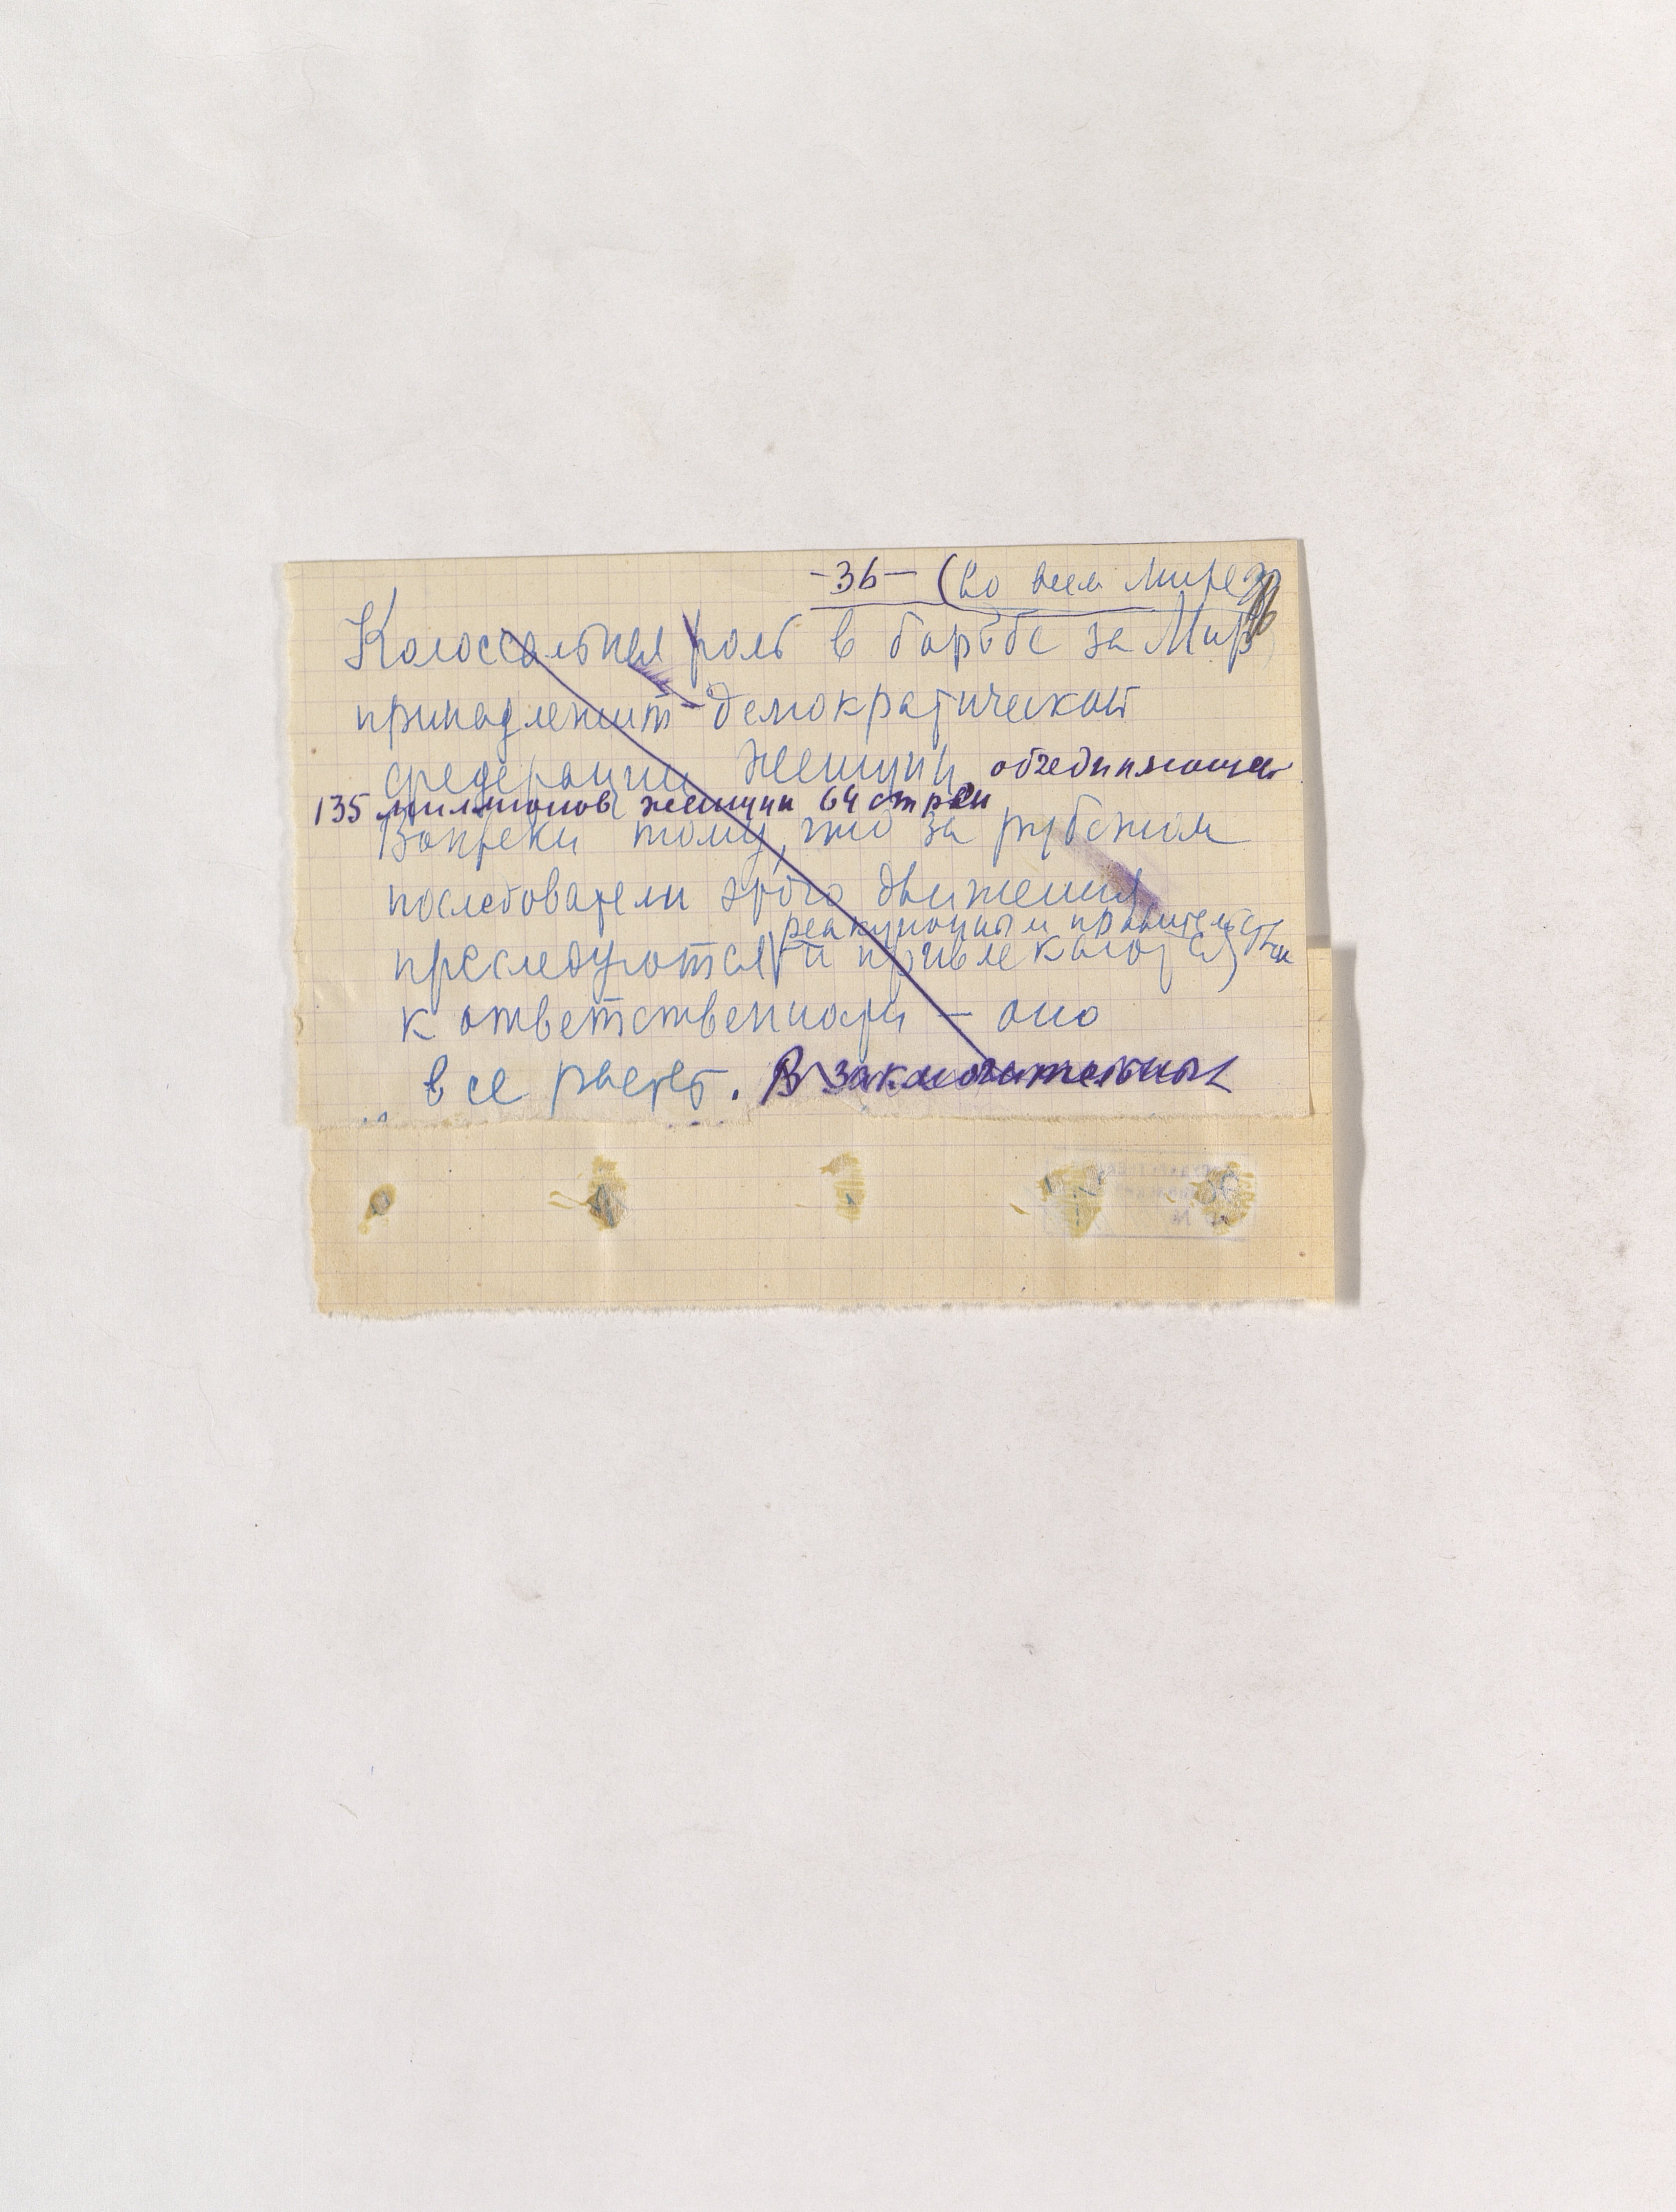 -36- (Во всем мире)
36
Колоссальная роль в борьбе за Мир
принадлежит демократической
федерации женщин, объединяющей
135 миллионов женщин 64 стран
Вопреки тому, что за рубежом
последователи этого движения
реакционными правительствами
преследуются и привлекаются
к ответственности — оно
все растет. В заключительных